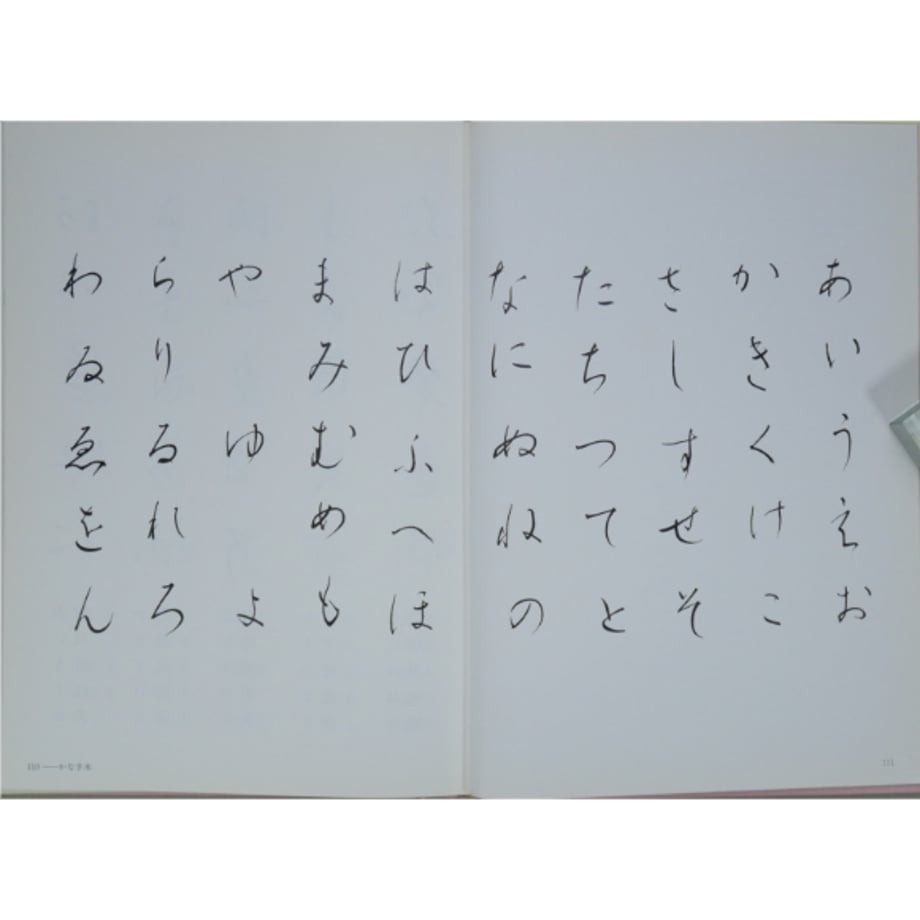 あいうえお
かきくけこ
さしすせそ
たちつてと
なにぬねの
はひふへほ
まみむめも
やゆよ
らりるれろ
わゐゑをん